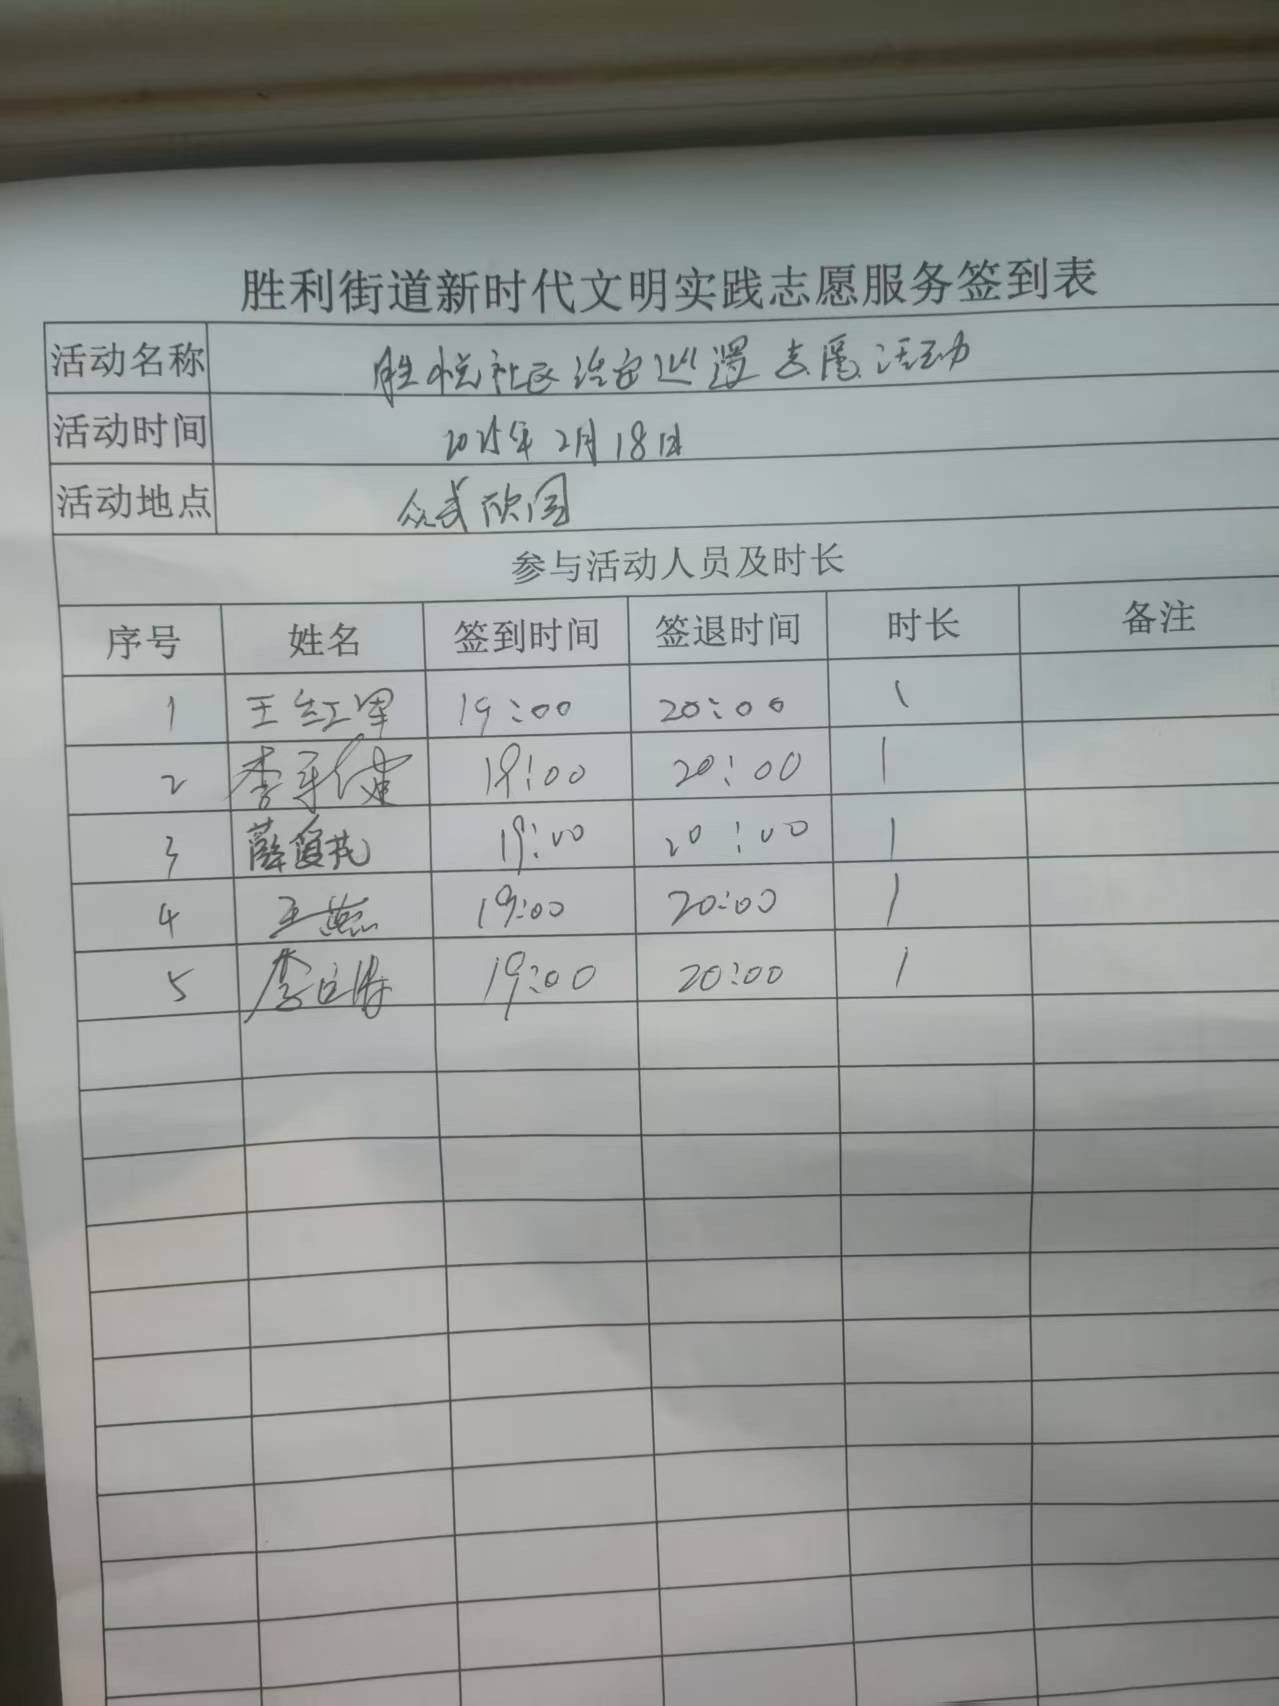 胜利街道新时代文明实践志愿服务签到表
活动名称 胜悦社区治安巡逻志愿活动
活动时间 2025年2月18日
活动地点 众成欣园
参与活动人员及时长
序号 姓名 签到时间 签退时间 时长 备注
1 王红军 19:00 20:00 1
2 李 19:00 20:00 1
3 薛霞 19:00 20:00 1
4 王燕 19:00 20:00 1
5 李 19:00 20:00 1